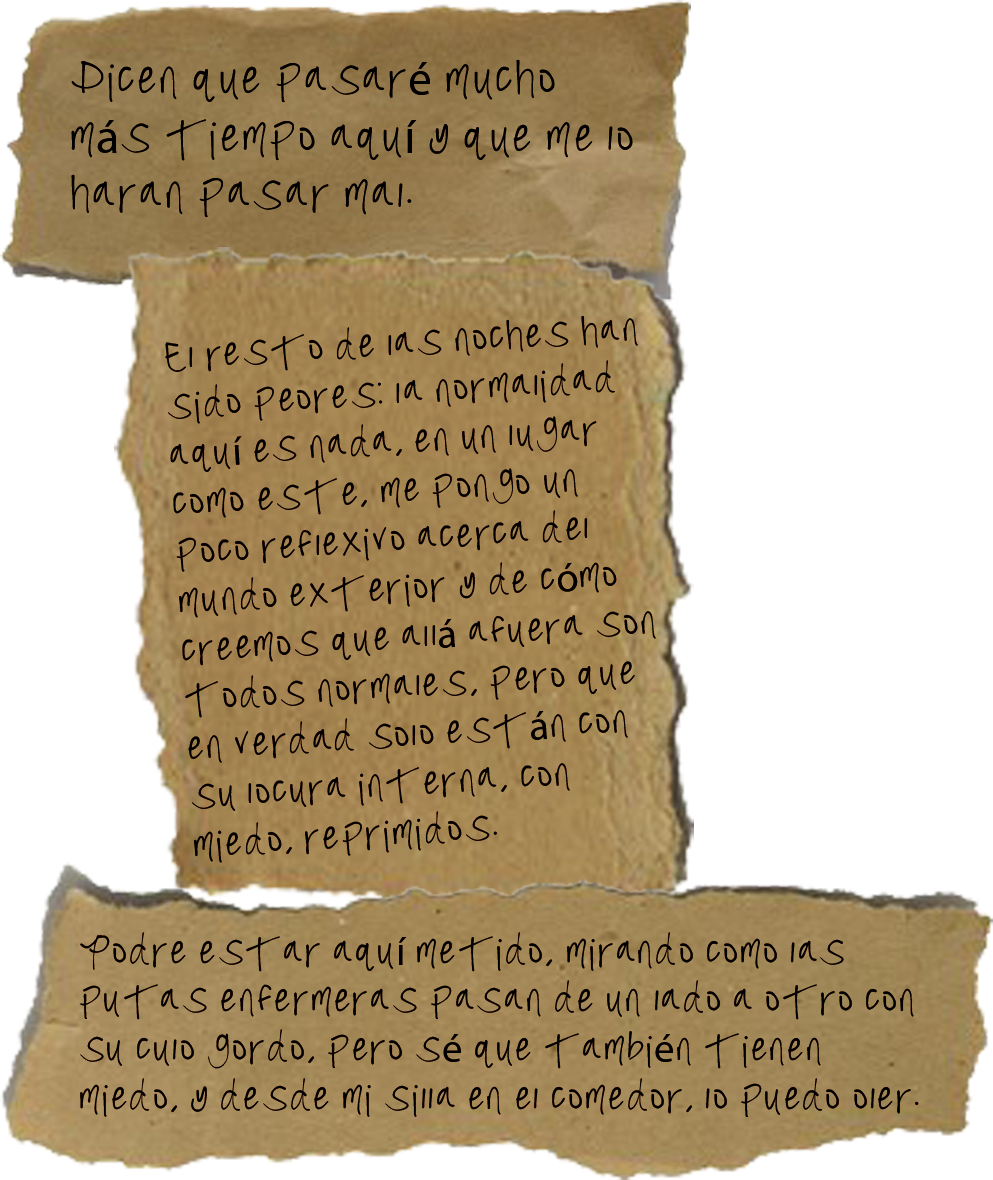 Dicen que pasaré mucho
más tiempo aquí y que me lo
haran pasar mal.
El resto de las noches han
sido peores: la normalidad
aquí es nada, en un lugar
como este, me pongo un
poco reflexivo acerca del
mundo exterior y de cómo
creemos que allá afuera son
todos normales, pero que
en verdad solo están con
su locura interna, con
miedo, reprimidos.
Podre estar aquí metido, mirando como las
putas enfermeras pasan de un lado a otro con
su culo gordo, pero sé que también tienen
miedo, y desde mi silla en el comedor, lo puedo oler.